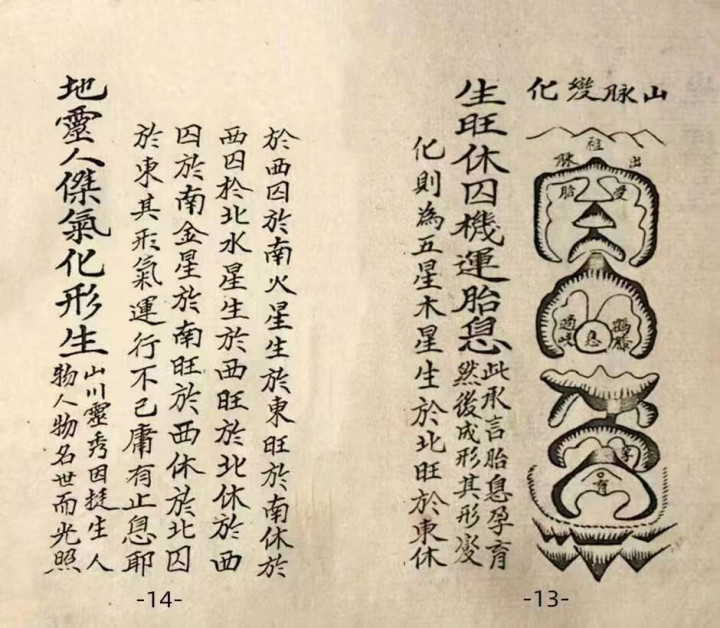 山脈變化
祖
出脈
受胎
鶴膝
息
過峽
孕
育
生旺休囚機運胎息
此承言胎息孕育
然後成形其形變
化則為五星木星生於北旺於東休
-13-
於西囚於南火星生於東旺於南休於
西囚於北水星生於西旺於北休於西
囚於南金星於南旺於西休於北囚
於東其形氣運行不已庸有止息耶
地靈人傑氣化形生
山川靈秀因挺生人
物人物名世而光照
-14-